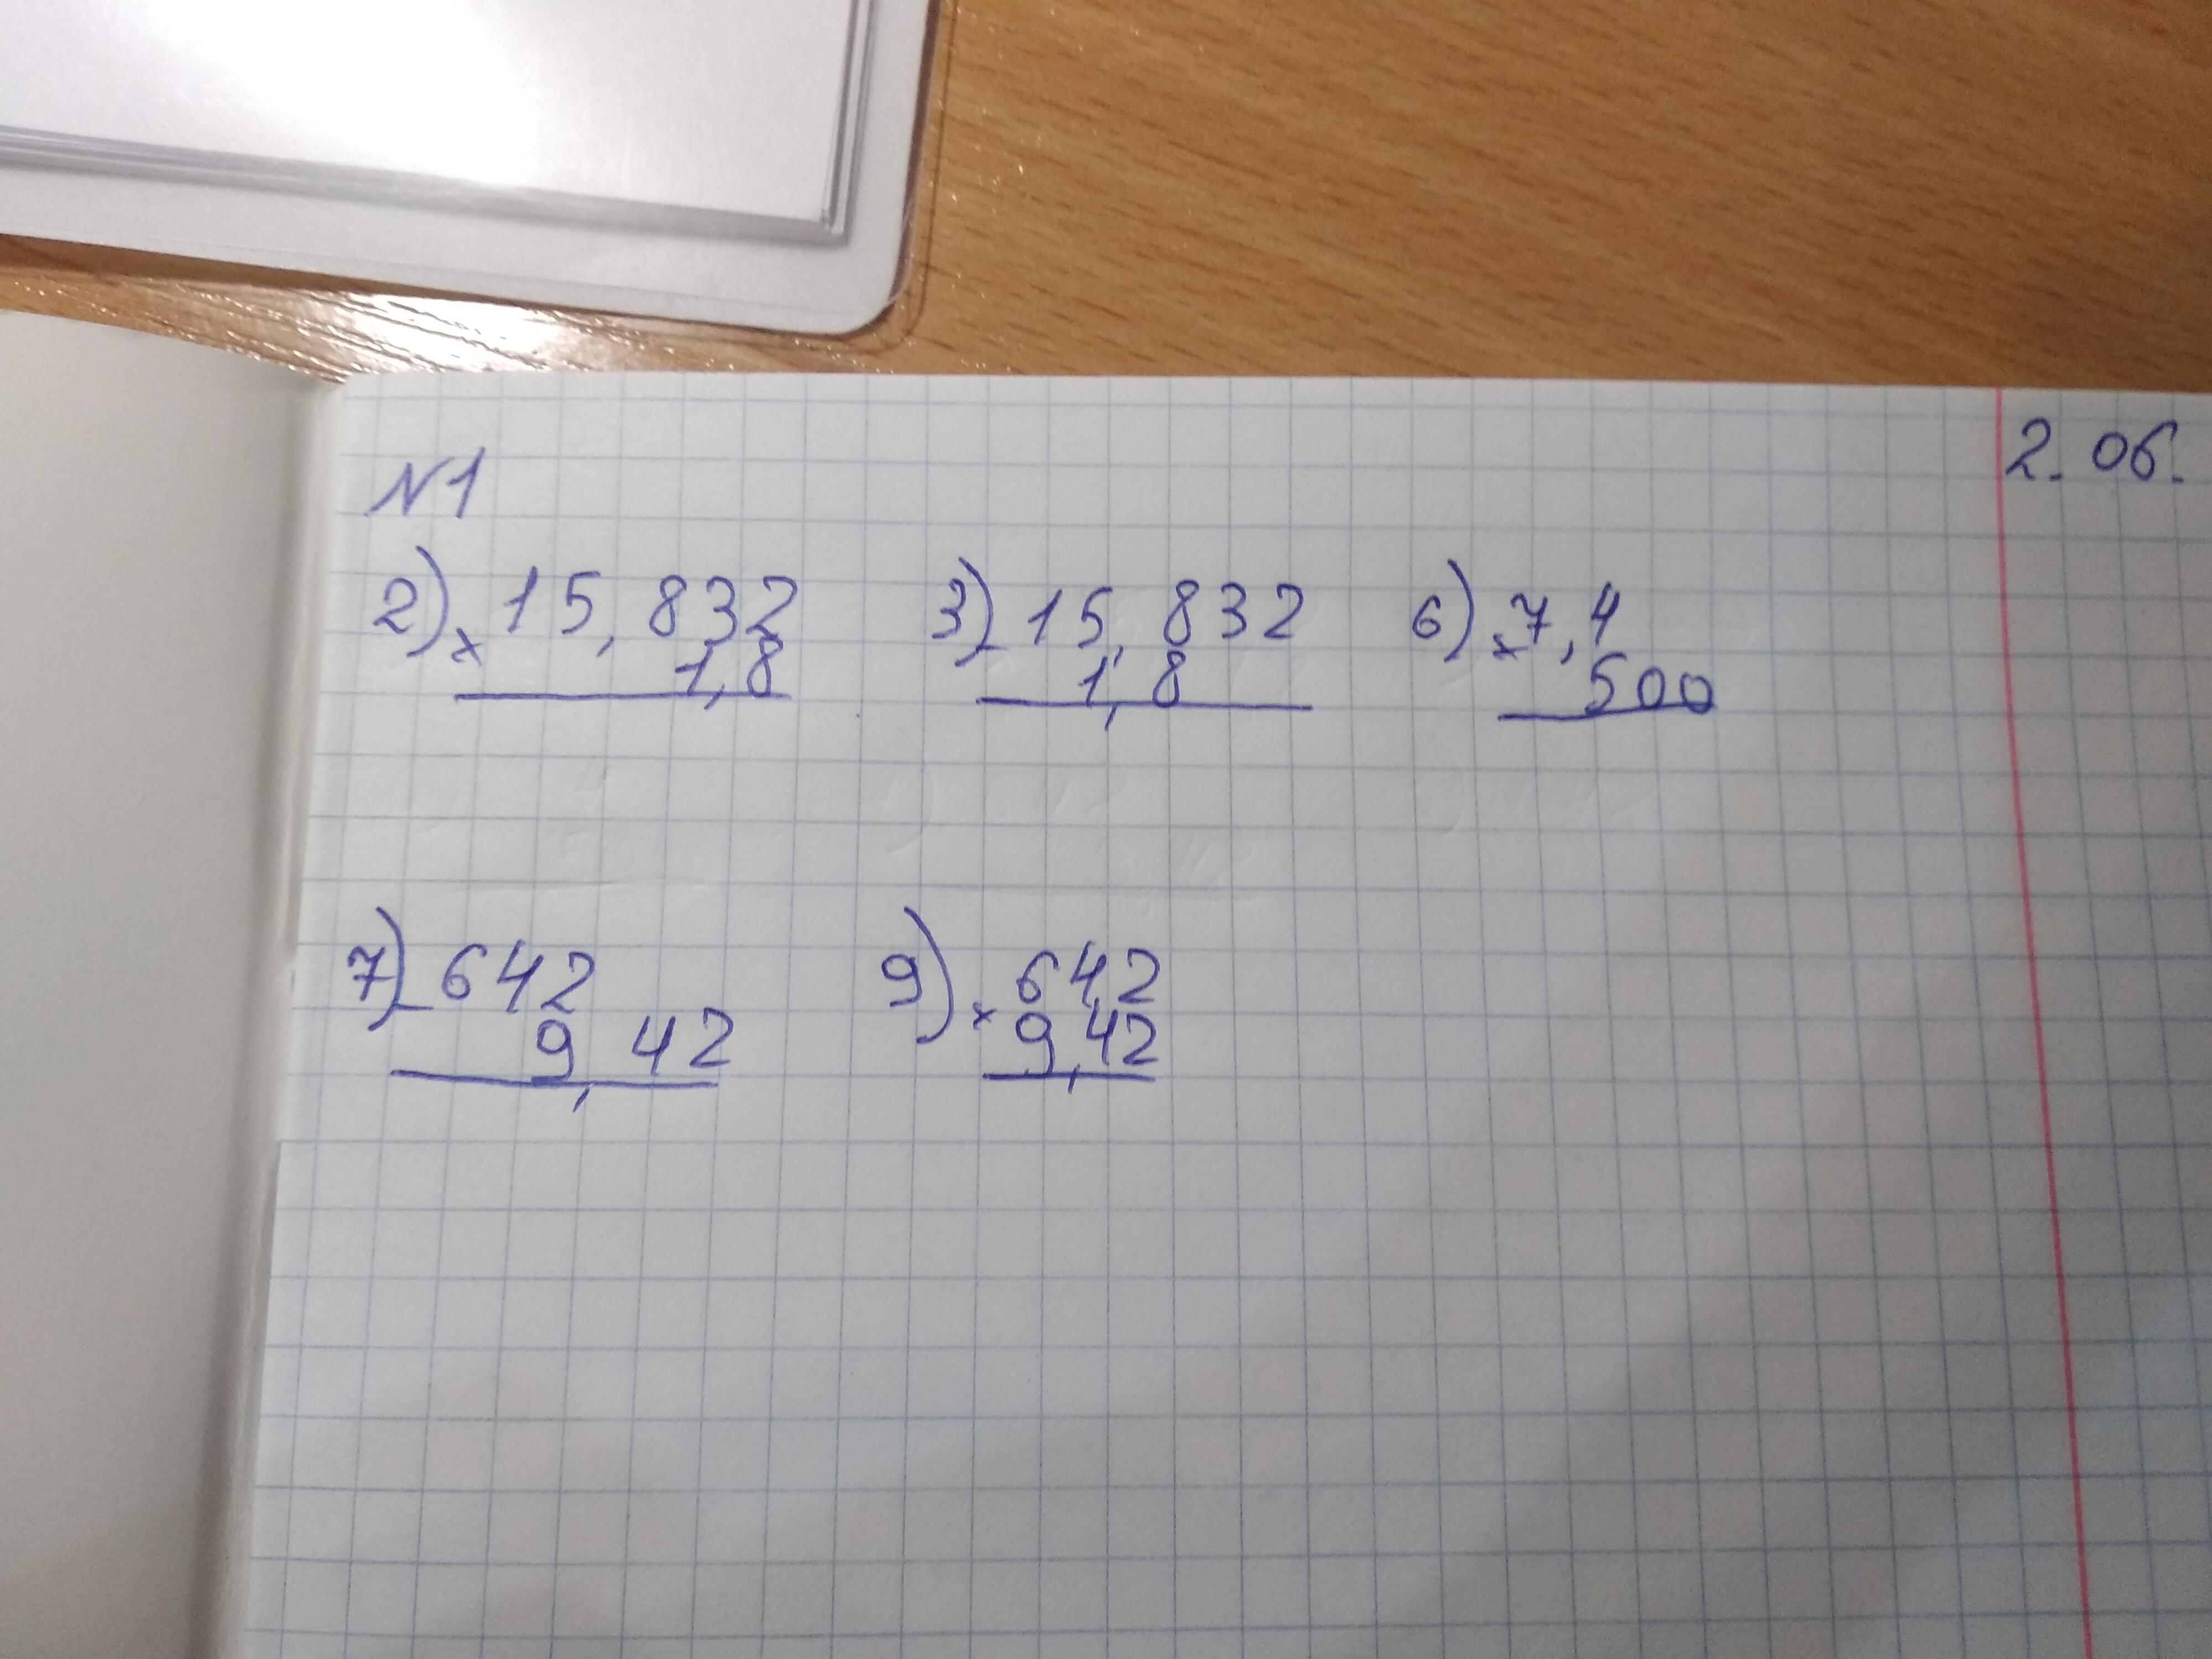 2.06.
№1
2) × 15,832 3) - 15,832 6) × 7,4
1,8 1,8 500
7) - 642 9) × 642
9,42 9,42